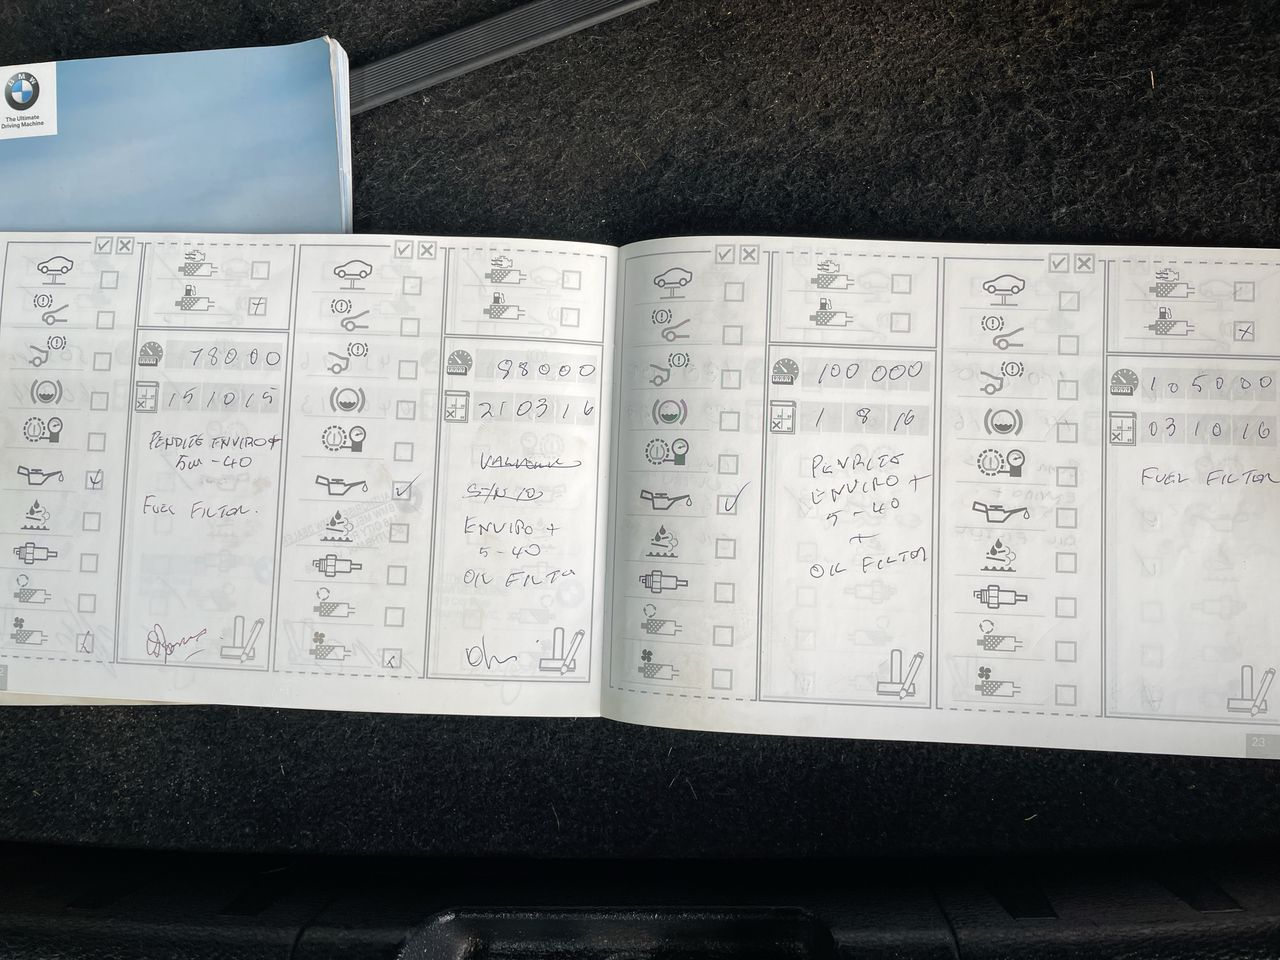 BMW
The Ultimate
Driving Machine
78000
151015
PENRITE ENVIRO+
5W-40
FUEL FILTOR.
98000
210316
ENVIRO +
5-40
OIL FILTO
100 000
1 8 16
PENRITE
ENVIRO +
5-40
+
OIL FILTOR
105000
031016
FUEL FILTOR
23